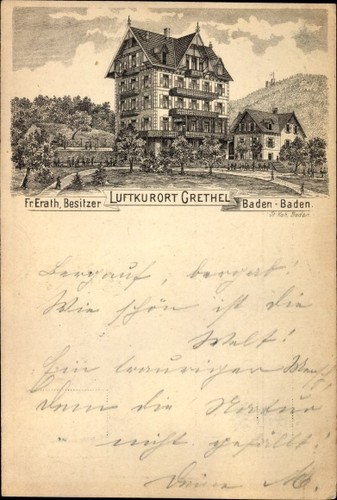 Fr. Erath, Besitzer LUFTKURORT GRETHEL Baden-Baden.
Bergauf, bergab!
Wie schön ist die
Welt!
Ein trauriger Mensch,
dem die Natur
nicht gefällt!
Deine M.